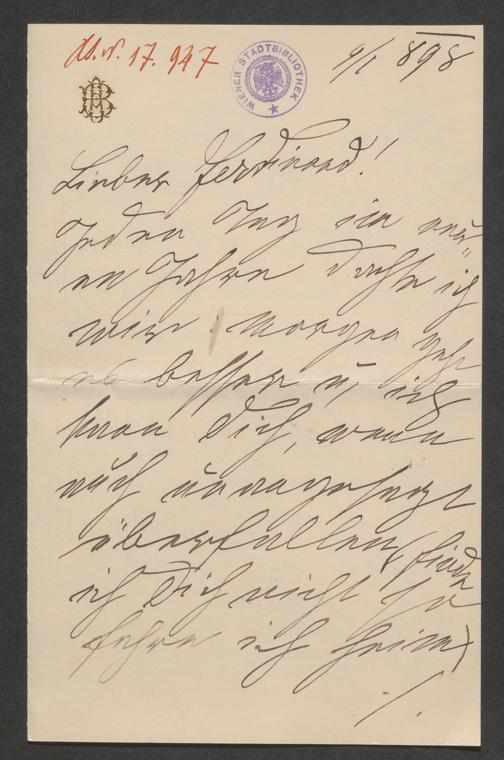 17.947
WIENER STADTBIBLIOTHEK
9/1 898
Lieber Ferdinand!
Jeden Tag im neu=
en Jahre dachte ich
mir morgen geht
es besser u, ich
kann Dich, wenn
auch unangesagt
überfallen (finde
ich Dich nicht so
fahre ich heim)
./.